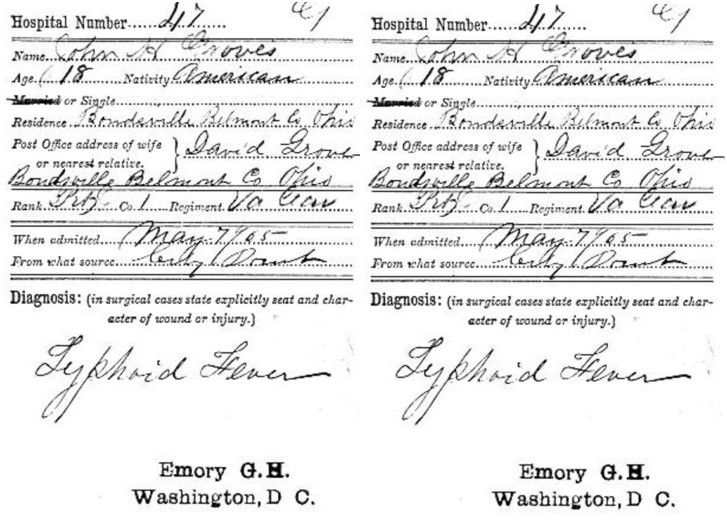 Hospital Number 417
Name John H Groves
Age 18 Nativity American
Married or Single
Residence Bondsville Belmont Co Ohio
Post Office address of wife or nearest relative. } David Grove
Bondsville Belmont Co Ohio
Rank Prt Co. 1 Regiment Va Cav
When admitted May 7 65
From what source City Point
Diagnosis: (in surgical cases state explicitly seat and char-
acter of wound or injury.)
Typhoid Fever
Emory G. H.
Washington, D C.
Hospital Number 417
Name John H Groves
Age 18 Nativity American
Married or Single
Residence Bondsville Belmont Co Ohio
Post Office address of wife or nearest relative. } David Grove
Bondsville Belmont Co Ohio
Rank Prt Co. 1 Regiment Va Cav
When admitted May 7 65
From what source City Point
Diagnosis: (in surgical cases state explicitly seat and char-
acter of wound or injury.)
Typhoid Fever
Emory G. H.
Washington, D C.